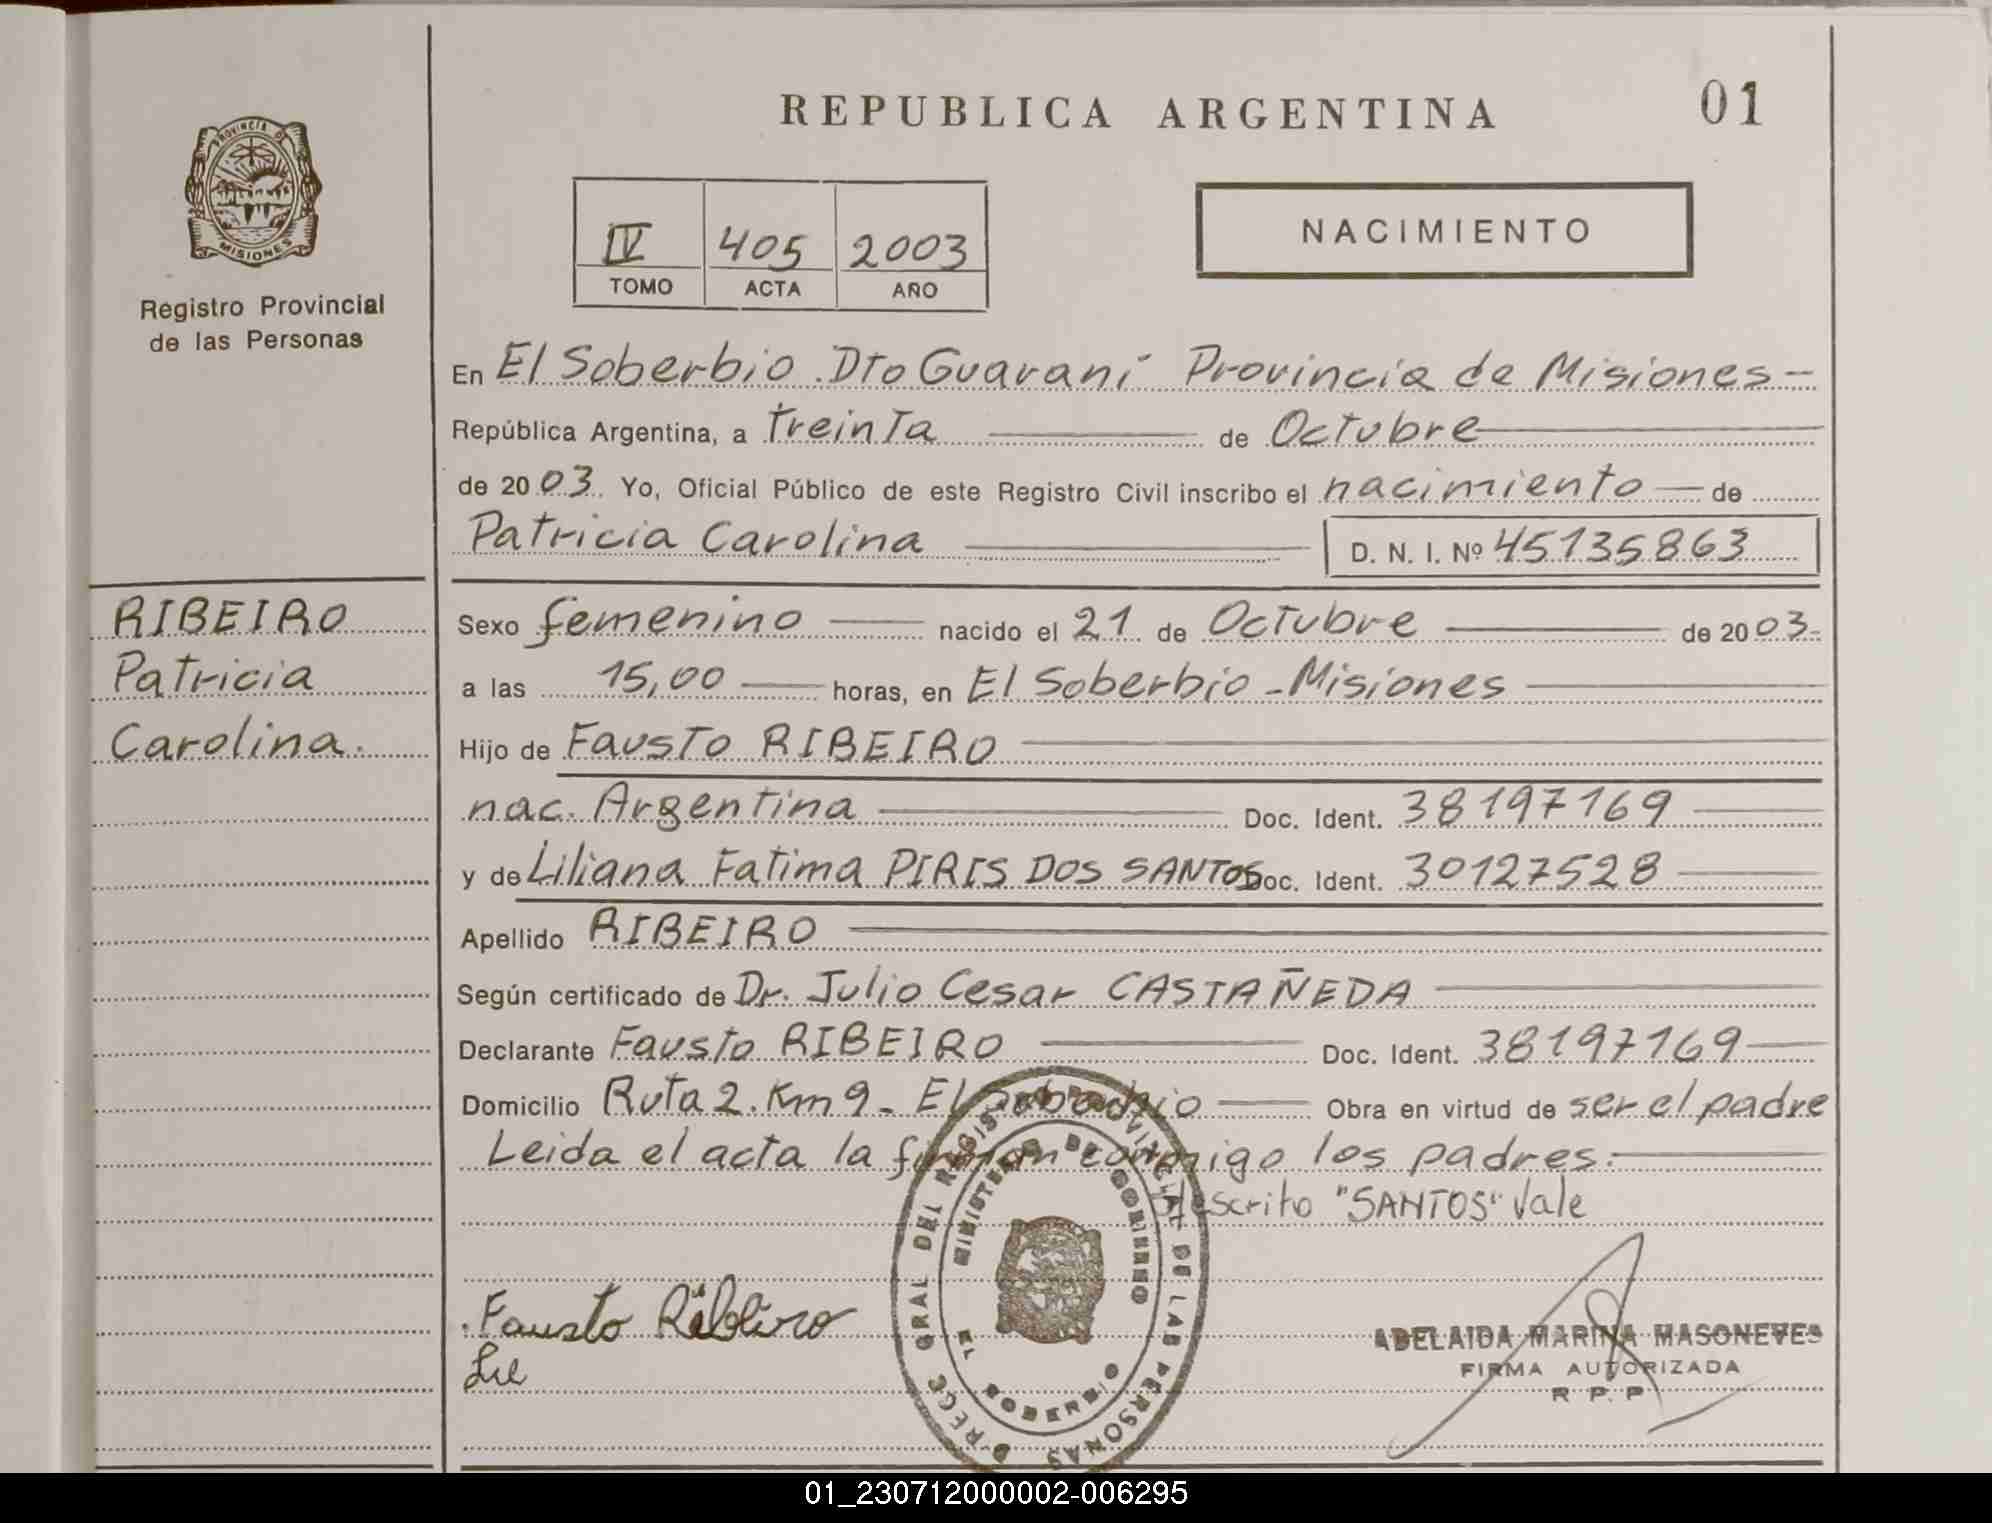 REPUBLICA ARGENTINA
01
PROVINCIA DE
MISIONES
Registro Provincial
de las Personas
IV 405 2003
TOMO ACTA AÑO
NACIMIENTO
En El Soberbio Dto Guaraní Provincia de Misiones-
República Argentina, a treinta de Octubre
de 2003. Yo, Oficial Público de este Registro Civil inscribo el nacimiento de
Patricia Carolina D. N. I. Nº 45135863
RIBEIRO
Patricia
Carolina.
Sexo femenino nacido el 21 de Octubre de 2003-
a las 15,00 horas, en El Soberbio - Misiones
Hijo de Fausto RIBEIRO
nac. Argentina Doc. Ident. 38197169
y de Liliana Fatima PIRIS DOS SANTOS Doc. Ident. 30127528
Apellido RIBEIRO
Según certificado de Dr. Julio Cesar CASTAÑEDA
Declarante Fausto RIBEIRO Doc. Ident. 38197169
Domicilio Ruta 2. Km 9- El Soberbio Obra en virtud de ser el padre
Leida el acta la firman conmigo los padres.-
"SANTOS" Vale
Fausto Ribeiro
Lil
GRAL DEL REGISTRO PROVINCIAL DE LAS PERSONAS
MINISTERIO DE GOBIERNO
EL SOBERBIO
ADELAIDA MARINA MASONEVES
FIRMA AUTORIZADA
R. P. P
01_230712000002-006295